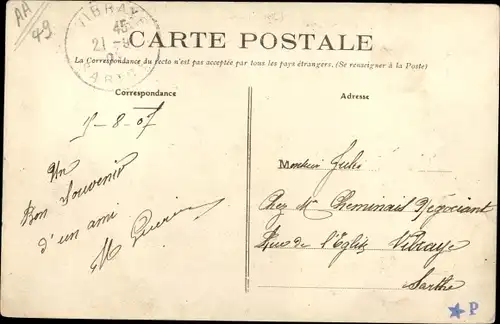 AA
49
VIBRAYE
SARTHE
CARTE POSTALE
La Correspondance du recto n'est pas acceptée par tous les pays étrangers. (Se renseigner à la Poste)
Correspondance
Adresse
5-8-07
Un
Bon Souvenir
d'un ami
M Guerin
Monsieur Jules
Chez Mr Cheminais Négociant
Rue de l'Eglise Vibraye
Sarthe
P